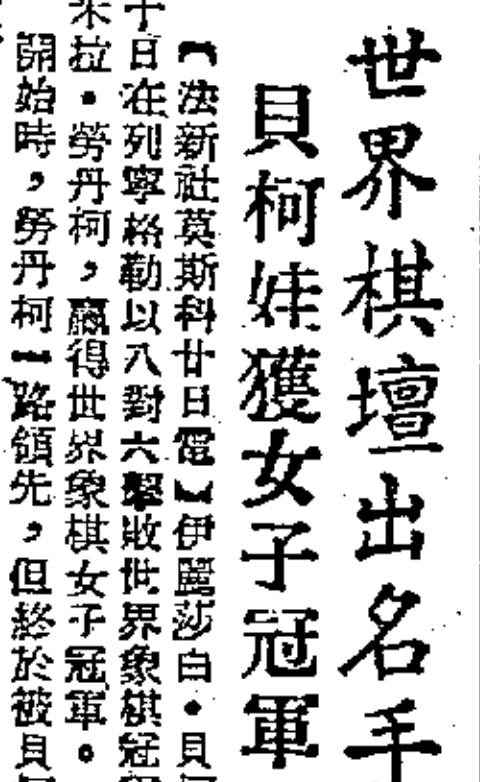 世界棋壇出名手
貝柯娃獲女子冠軍
【法新社莫斯科廿日電】伊麗莎白・貝
十日在列寧格勒以八對六擊敗世界象棋冠
米拉・勞丹柯，贏得世界象棋女子冠軍。
開始時，勞丹柯一路領先，但終於被貝